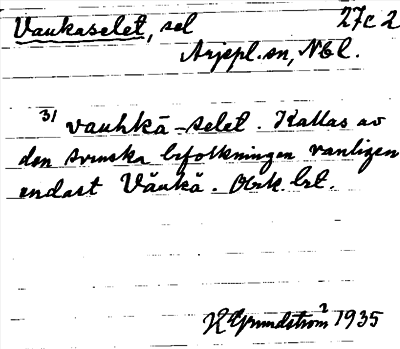 Vaukaselet, sel 27c2
Arjepl. sn, Nbl.
31 vauhkā-selet. Kallas av
den svenska befolkningen vanligen
endast Våukå. Obrk. bet.
K Grundström 1935